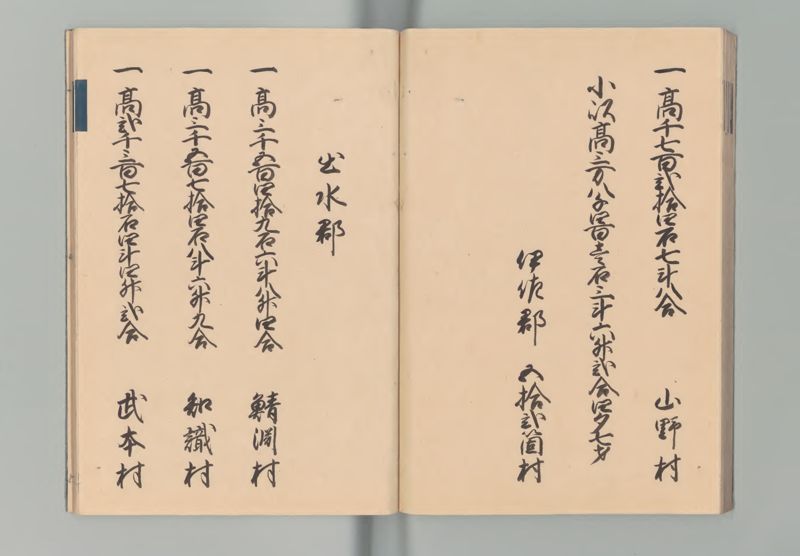 一高千七百弐拾四石七斗八合 山野村
小以高三万八千四百壱石三斗六升弐合四夕七才
伊佐郡 五拾弐箇村
出水郡
一高三千五百四拾九石六斗八升四合 鯖淵村
一高三千五百七拾四石八斗六升九合 知識村
一高弐千三百七拾石四斗四升弐合 武本村